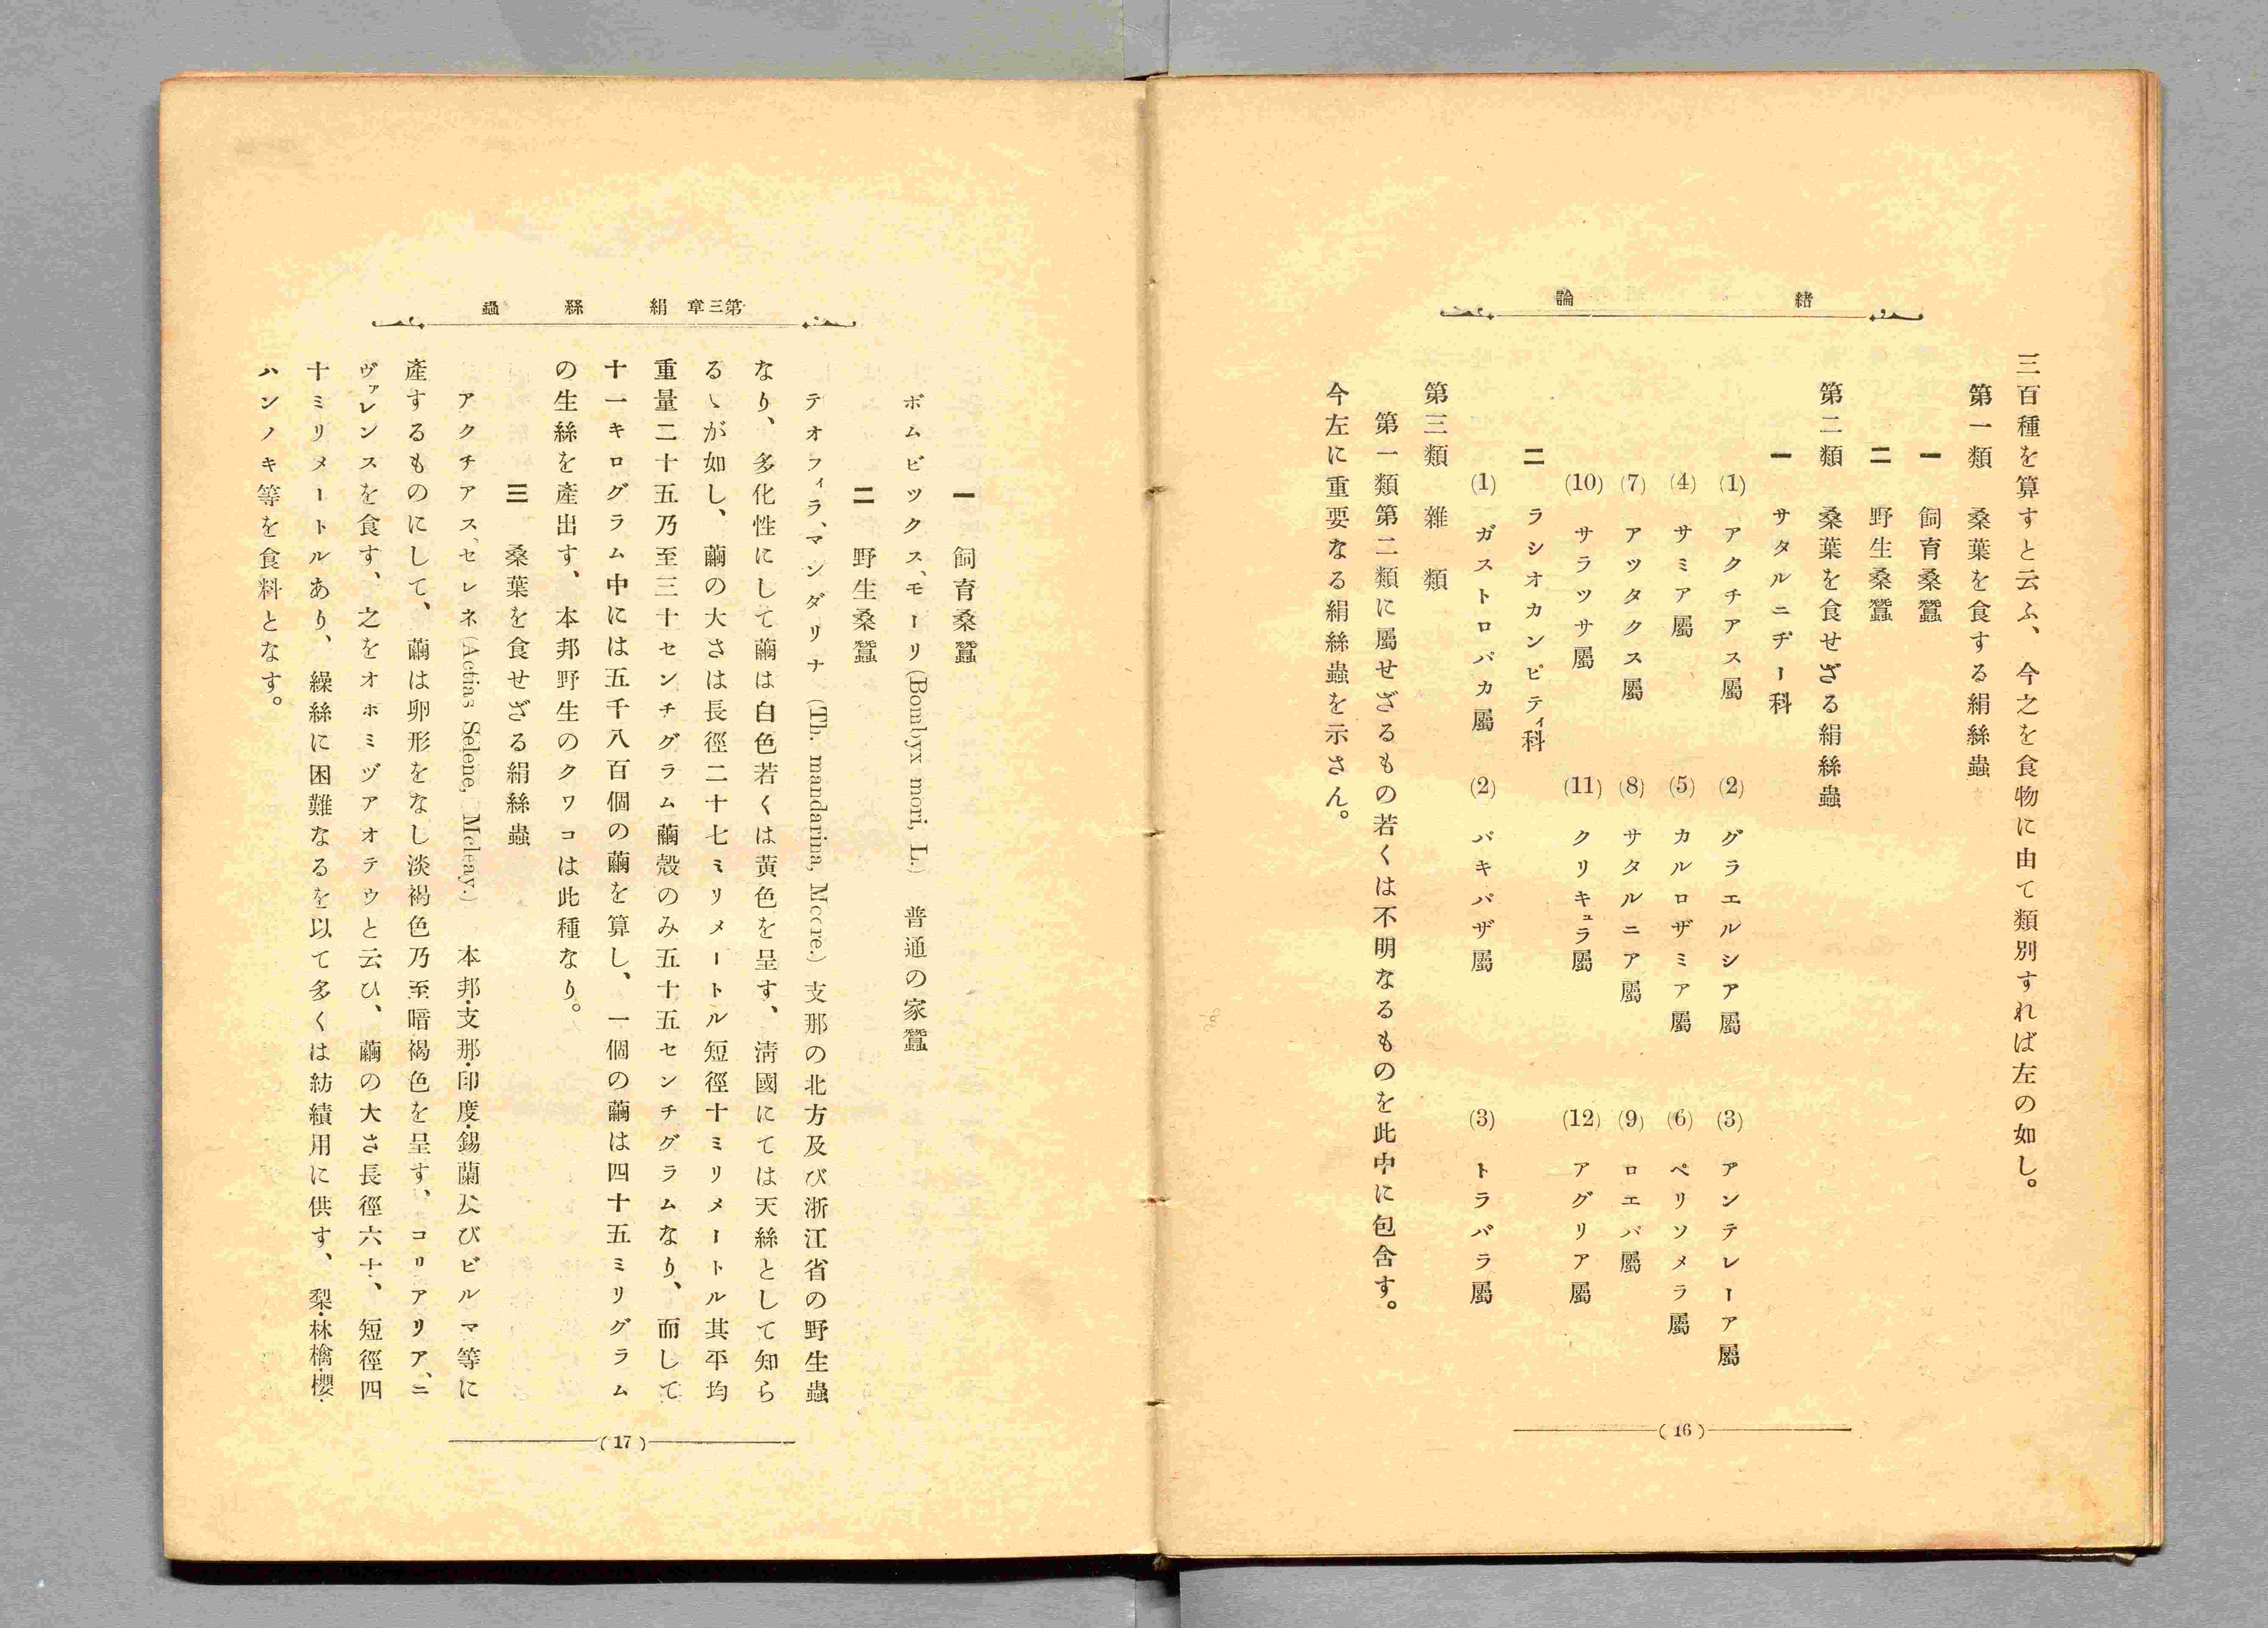 緒論
三百種を算すと云ふ、今之を食物に由て類別すれば左の如し。
第一類　桑葉を食する絹絲蟲
一　飼育桑蠶
二　野生桑蠶
第二類　桑葉を食せざる絹絲蟲
一　サタルニヂー科
(1)　アクチアス屬　(2)　グラエルシア屬　(3)　アンテレーア屬
(4)　サミア屬　(5)　カルロザミア屬　(6)　ペリソメラ屬
(7)　アツタクス屬　(8)　サタルニア屬　(9)　ロエバ屬
(10)　サラツサ屬　(11)　クリキュラ屬　(12)　アグリア屬
二　ラシオカンピティ科
(1)　ガストロパカ屬　(2)　パキパザ屬　(3)　トラバラ屬
第三類　雜　類
第一類第二類に屬せざるもの若くは不明なるものを此中に包含す。
今左に重要なる絹絲蟲を示さん。
(16)
第三章　絹絲蟲
一　飼育桑蠶
ボムビツクス、モーリ(Bombyx mori, L.)　普通の家蠶
二　野生桑蠶
テオフィラ、マンダリナ(Th. mandarina, Moore.)支那の北方及び浙江省の野生蟲
なり、多化性にして繭は白色若くは黄色を呈す、淸國にては天絲として知ら
るゝが如し、繭の大さは長徑二十七ミリメートル短徑十ミリメートル其平均
重量二十五乃至三十センチグラム繭殼のみ五十五センチグラムなり、而して
十一キログラム中には五千八百個の繭を算し、一個の繭は四十五ミリグラム
の生絲を產出す、本邦野生のクワコは此種なり。
三　桑葉を食せざる絹絲蟲
アクチアス、セレネ(Actias Selene, Mcleay.)　本邦・支那・印度・錫蘭及びビルマ等に
產するものにして、繭は卵形をなし淡褐色乃至暗褐色を呈す、コリアリア、ニ
ヴァレンスを食す、之をオホミヅアオテウと云ひ、繭の大さ長徑六十、短徑四
十ミリメートルあり、繰絲に困難なるを以て多くは紡績用に供す、梨・林檎・櫻・
ハンノキ等を食料となす。
(17)